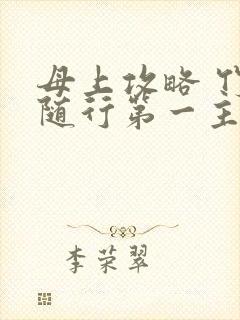 母上攻略
随行第一主
李荣翠